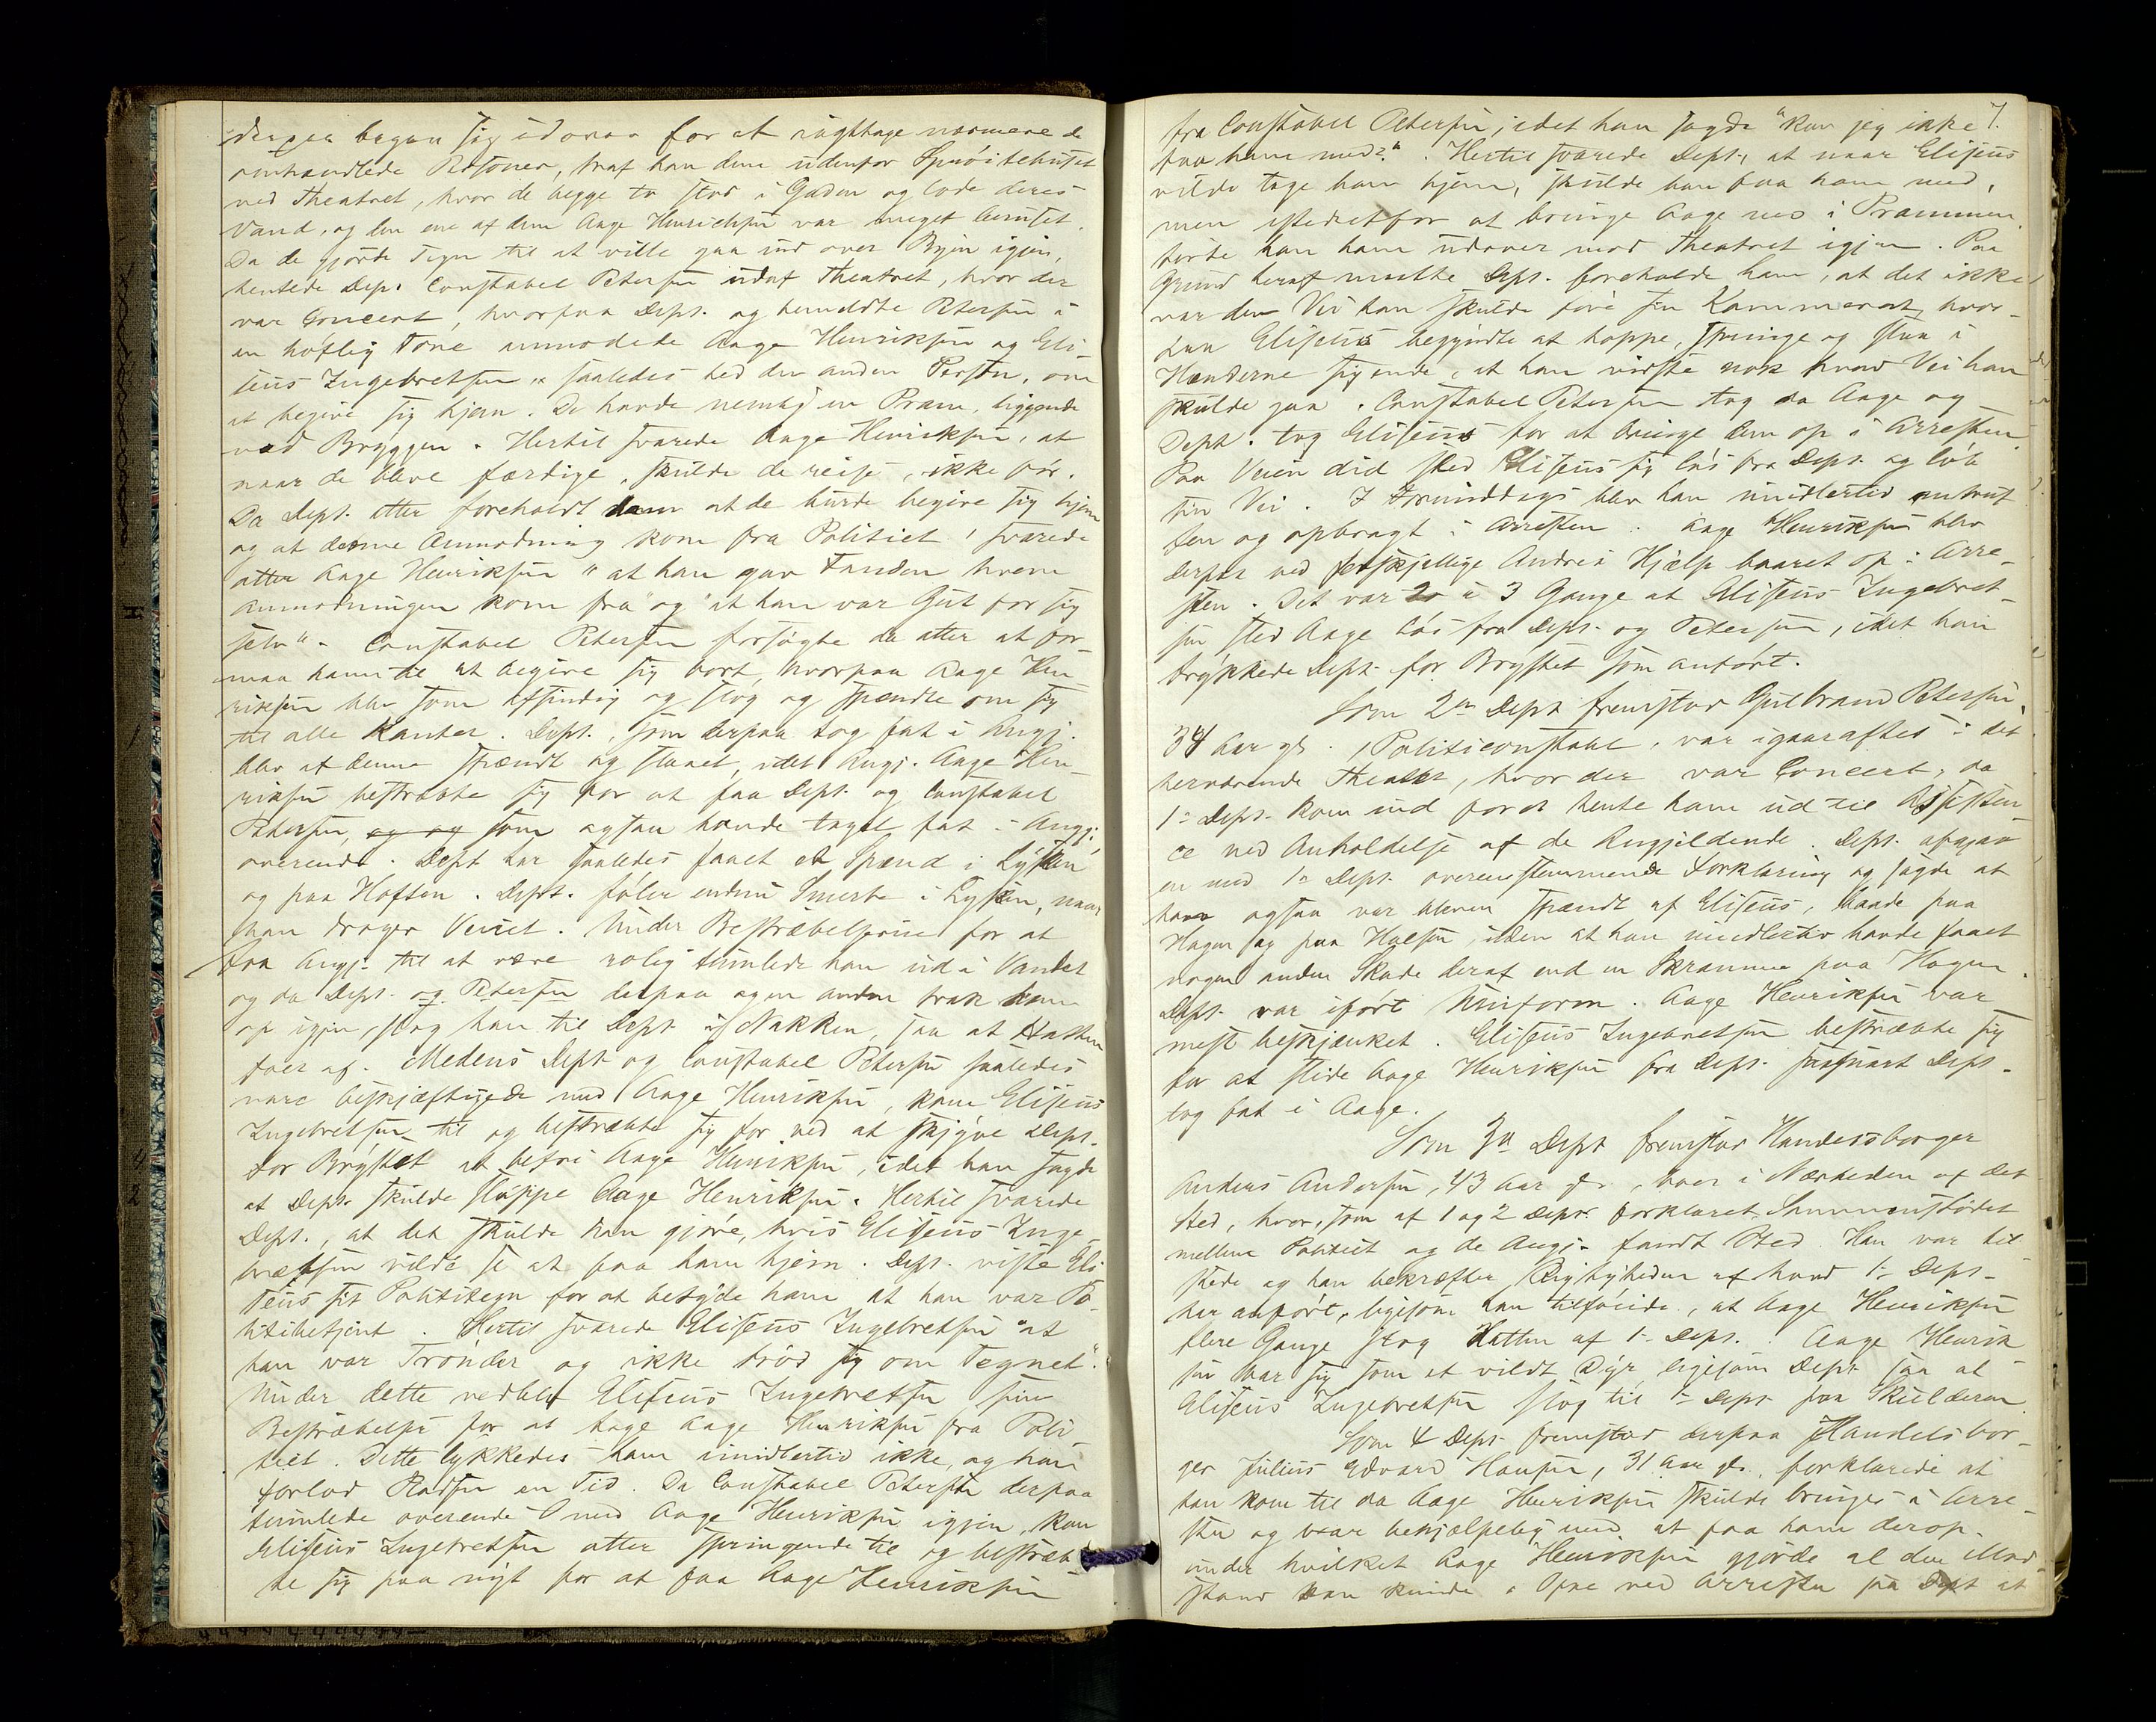 derpaa begav sig udover for at iagttage nærmere de
omhandlede Personer, traf han dem udenfor Sprøitehuset
ved Theatret, hvor de begge to stod i Gaden og lode deres
Vand, og den ene af dem Aage Henrichsen var meget beruset.
Da de gjorde Tegn til at ville gaa ind over Byen igjen,
hentede Dep. Constabel Petersen udaf Theatret, hvor der
var Concert, hvorpaa Dept. og bemeldte Petersen i
en høflig Tone anmodede Aage Henriksen og Eli-
seus Ingebretsen, saaledes hed den anden Person, om
at begive sig hjem. De havde nemlig en Pram liggende
ved Bryggen. Hertil svarede Aage Henriksen, at
naar de bleve færdige, skulde de reise, ikke før.
Da Dept. atter foreholdt dem at de burde begive sig hjem
og at denne Anmodning kom fra Politiet, svarede
atter Aage Henriksen "at han gav Fanden hvem
Anmodningen kom fra" og "at han var Gut for sig
selv". Constabel Petersen forsøgte da atter at for-
maa ham til at begive sig bort, hvorpaa Aage Hen-
riksen blev som afsindig og slog og spændte om sig
til alle Kanter. Dept., som derpaa tog fat i Angj.
blev af denne spændt og slaaet, idet Angj. Aage Hen-
riksen bestræbte sig for at faa Dept. og Constabel
Petersen, og og som ogsaa havde taget fat i Angj.,
overende. Dept har saaledes faaet et Spænd i Lysken
og paa Hoften. Dept. føler endnu Smerte i Lysken, naar
han drager Veiret. Under Bestræbelserne for at
faa Angj. til at være rolig tumlede han ud i Vandet
og da Dept. og Petersen derpaa og en anden trak ham
op igjen, slog han til Dept i Nakken, saa at Hatten
foer af. Medens Dept og Constabel Petersen saaledes
vare beskjæftigede med Aage Henriksen, kom Eliseus
Ingebretsen til og bestræbte sig for ved at skyve Dept.
for Brystet at befri Aage Henriksen, idet han sagde
at Dept. skulde slippe Aage Henriksen. Hertil svarede
Dept., at det skulde han gjøre, hvis Eliseus Inge-
bretsen vilde se at faa ham hjem. Dept. viste Eli-
seus sit Polititegn for at betyde ham at han var Po-
litibetjent. Hertil svarede Eliseus Ingebretsen "at
han var Trønder og ikke brød sig om Tegnet".
Under dette vedblev Eliseus Ingebretsen sine
Bestræbelser for at tage Aage Henriksen fra Poli-
tiet. Dette lykkedes ham imidlertid ikke, og han
forlod Pladsen en Tid. Da Constabel Petersen derpaa
tumlede overende med Aage Henriksen igjen, kom
Eliseus Ingebretsen atter springende til og bestræb-
te sig paa nyt for at faa Aage Henriksen
7.
fra Constabel Petersen, idet han sagde "kan jeg ikke
faa ham med?". Hertil svarede Dept., at naar Eliseus
vilde tage ham hjem, skulde han faa ham med,
men istedetfor at bringe Aage ned i Prammen
førte han ham udover mod Theatret igjen. Paa
Grund heraf maatte Dept. foreholde ham, at det ikke
var den Vei han skulde føre sin Kammerat, hvor-
paa Eliseus begyndte at hoppe, springe og slaa i
Hænderne sigende, at han vidste nok hvad Vei han
skulde gaa. Constabel Petersen tog da Aage og
Dept. tog Eliseus for at bringe dem op i Arresten.
Paa Veien did sled Eliseus sig løs fra Dept. og løb
sin Vei. I Formiddags blev han imidlertid antruf-
fen og opbragt i Arresten. Aage Henriksen blev
derpaa ved forskjellige Andres Hjælp baaret op i Arre-
sten. Det var 2 a 3 Gange at Eliseus Ingebret-
sen sled Aage løs fra Dept. og Petersen, idet han
trykkede Dept. for Brystet som anført.
Som 2n Dept fremstod Gulbrand Petersen,
34 Aar gl., Politiconstabel, var igaaraftes i det
herværende Theater, hvor der var Concert, da
1e Dept. kom ind for at hente ham ud til Assistan-
ce ved Anholdelse af de Angjeldende. Dept. afgav
en med 1e Dept. overensstemmende Forklaring og sagde at
han ogsaa var bleven spændt af Eliseus, baade paa
Hagen og paa Halsen, uden at han imidlertid havde faaet
nogen anden Skade deraf end en Skramme paa Hagen.
Dept. var iført Uniform. Aage Henriksen var
mest beskjænket. Eliseus Ingebretsen bestræbte sig
for at slide Aage Henriksen fra Dept. saasnart Dept.
tog fat i Aage.
Som 3u Dept fremstod Handelsborger
Anders Andersen, 43 Aar gl., boer i Nærheden af det
Sted, hvor, som af 1 og 2 Dept. forklaret Sammenstødet
mellem Politiet og de Angj. fandt Sted. Han var til-
stede og han bekræfter Rigtigheden af hvad 1e Dept.
har anført, ligesom han tilføiede, at Aage Henriksen
flere Gange slog Hatten af 1e Dept. Aage Henrik-
sen bar sig som et vildt Dyr, ligesom Dept saa at
Eliseus Ingebretsen slog til 1e Dept paa Skulderen.
Som 4 Dept. fremstod derpaa Handelsbor-
ger Julius Edvard Hansen, 31 Aar gl., forklarede at
han kom til da Aage Henriksen skulde bringes i Arre-
sten og var behjælpelig med at faa ham derop,
under hvilket Aage Henriksen gjorde al den Mod-
stand han kunde. Oppe ved Arresten saa Dept at